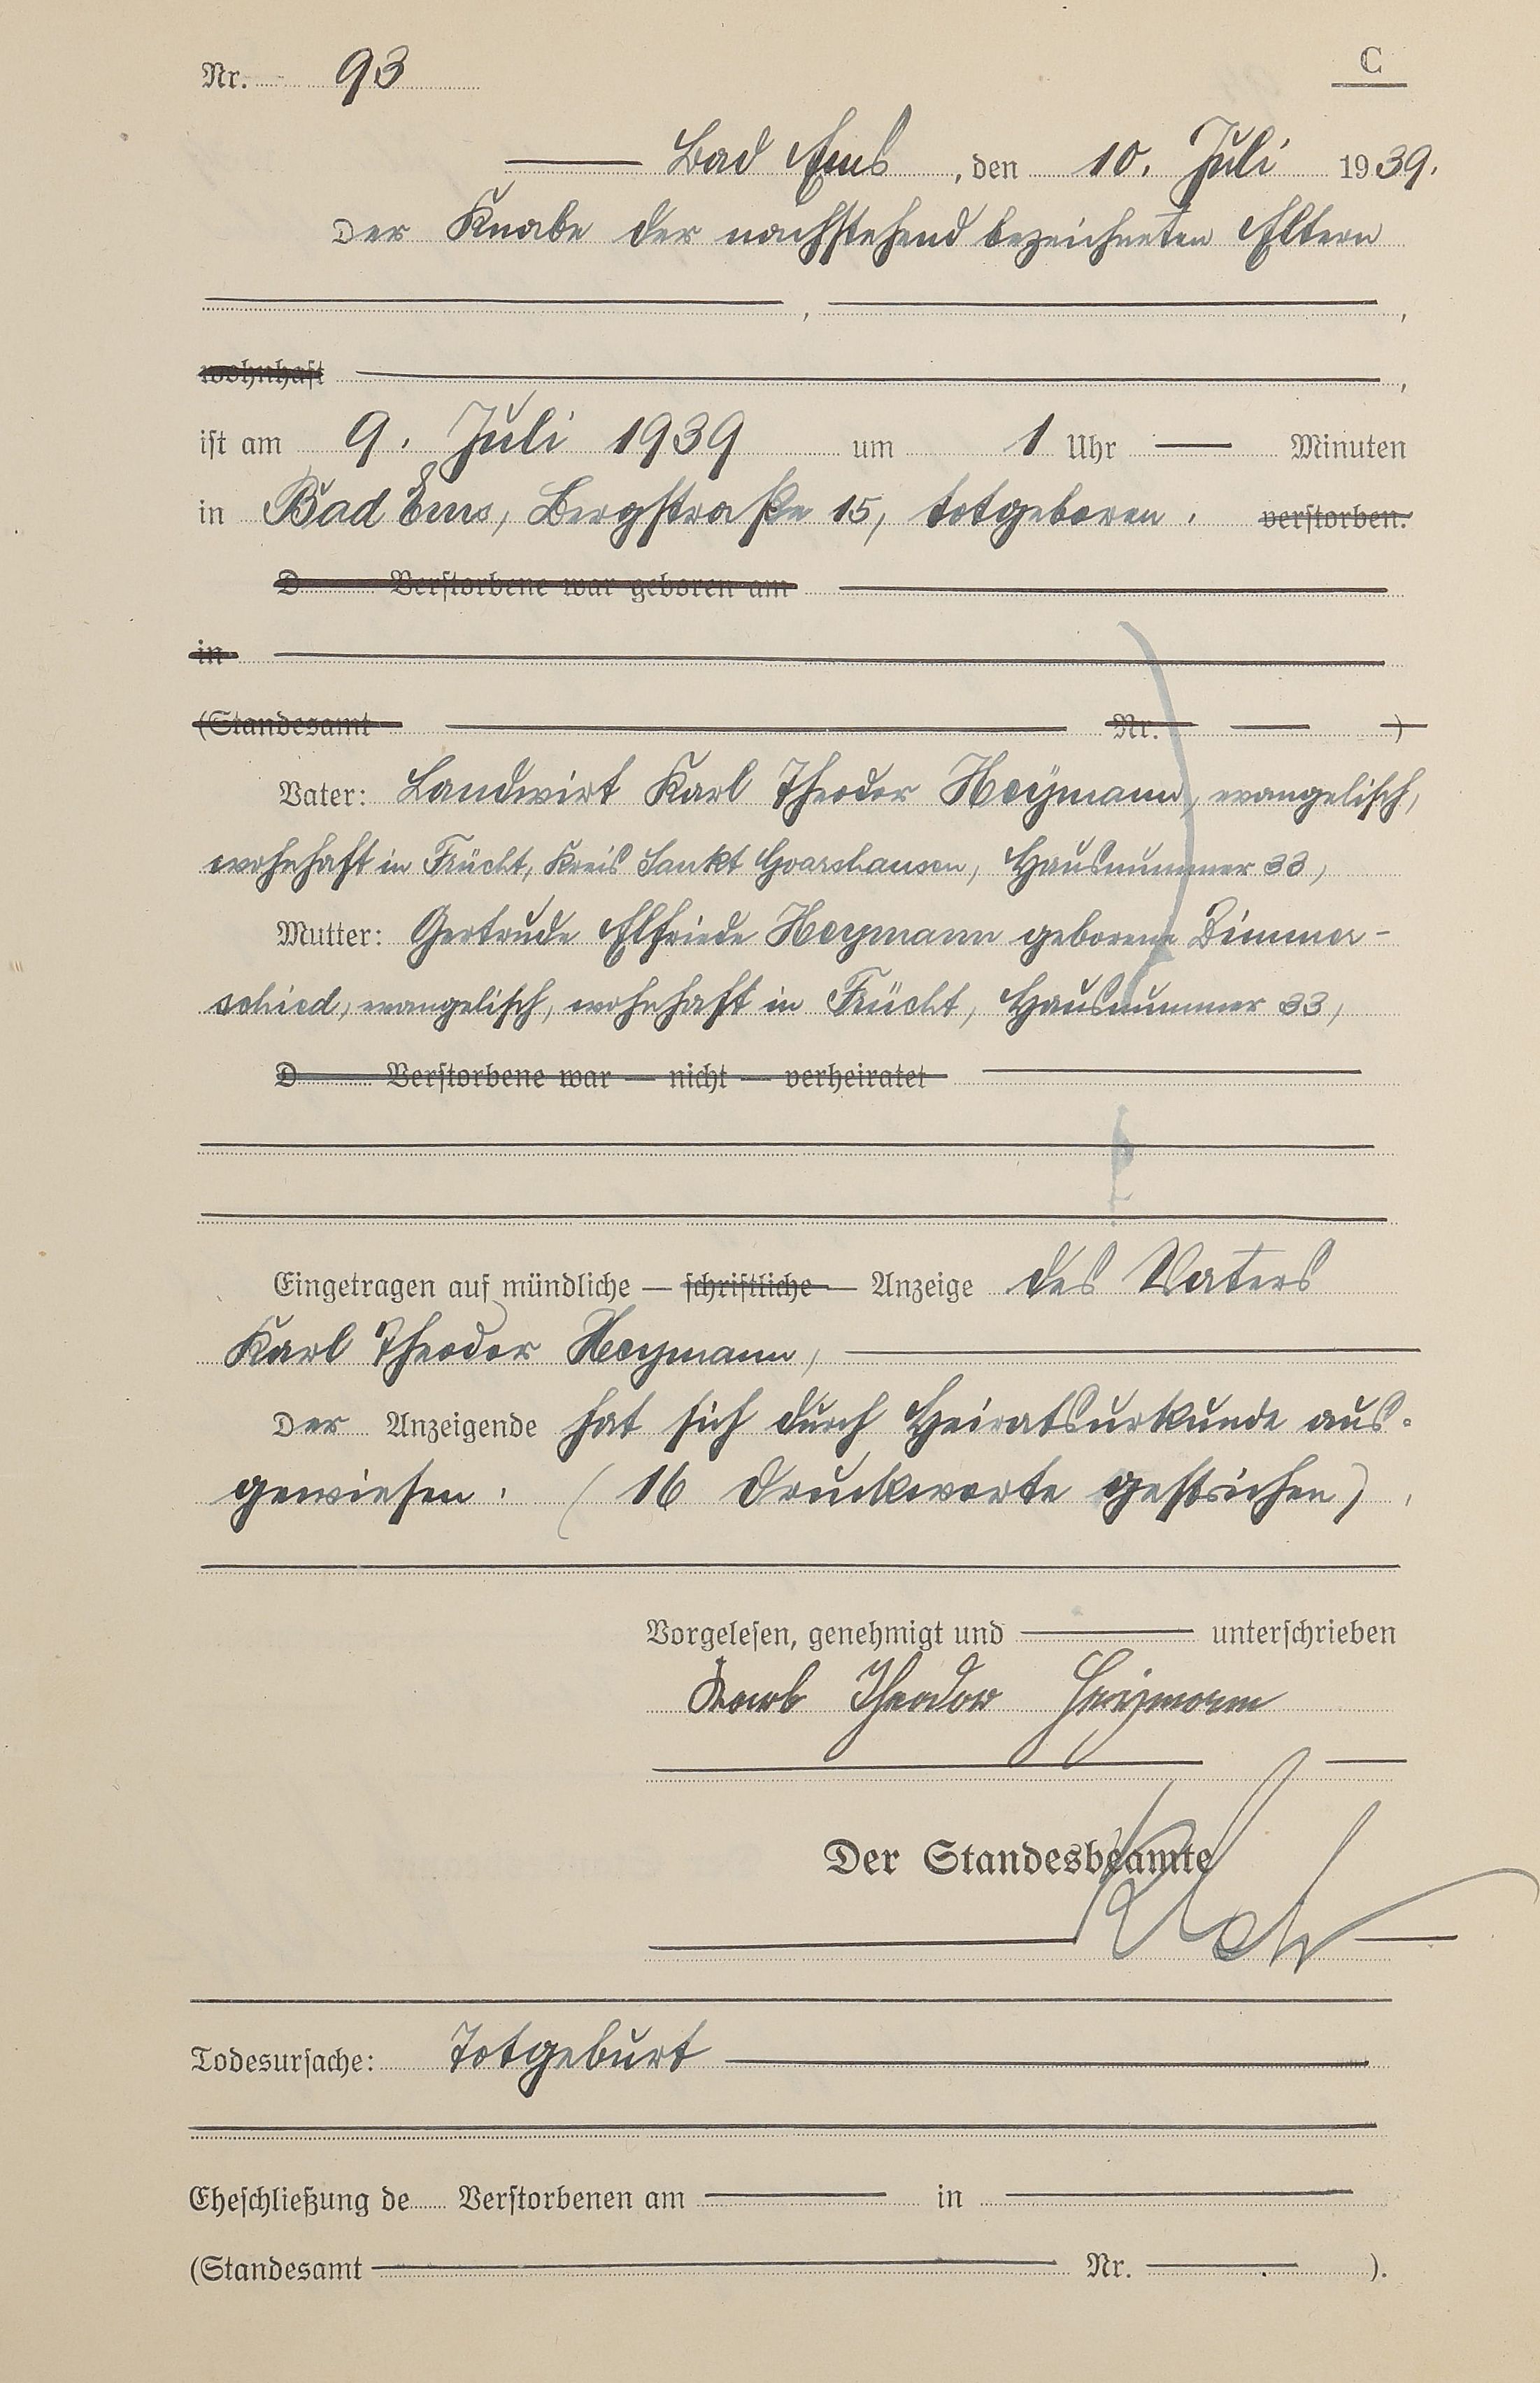 Nr. 93
C
Bad Ems, den 10. Juli 1939.
Der Knabe der nachstehend bezeichneten Eltern
,,
wohnhaft ,
ist am 9. Juli 1939 um 1 Uhr — Minuten
in Bad Ems, Bergstraße 15, totgeboren. verstorben.
D Verstorbene war geboren am
in
(Standesamt Nr. — )
Vater: Landwirt Karl Theodor Heymann, evangelisch,
wohnhaft in Frücht, Kreis Sankt Goarshausen, Hausnummer 33,
Mutter: Gertrude Elfriede Heymann geborene Dimmer-
schied, evangelisch, wohnhaft in Frücht, Hausnummer 33,
D Verstorbene war — nicht — verheiratet
Eingetragen auf mündliche — schriftliche — Anzeige des Vaters
Karl Theodor Heymann,
Der Anzeigende hat sich durch Heiratsurkunde aus-
gewiesen. (16 Druckworte gestrichen).
Vorgelesen, genehmigt und — unterschrieben
Karl Theodor Heymann
Der Standesbeamte
Todesursache: Totgeburt
Eheschließung de Verstorbenen am — in —
(Standesamt — Nr. — ).